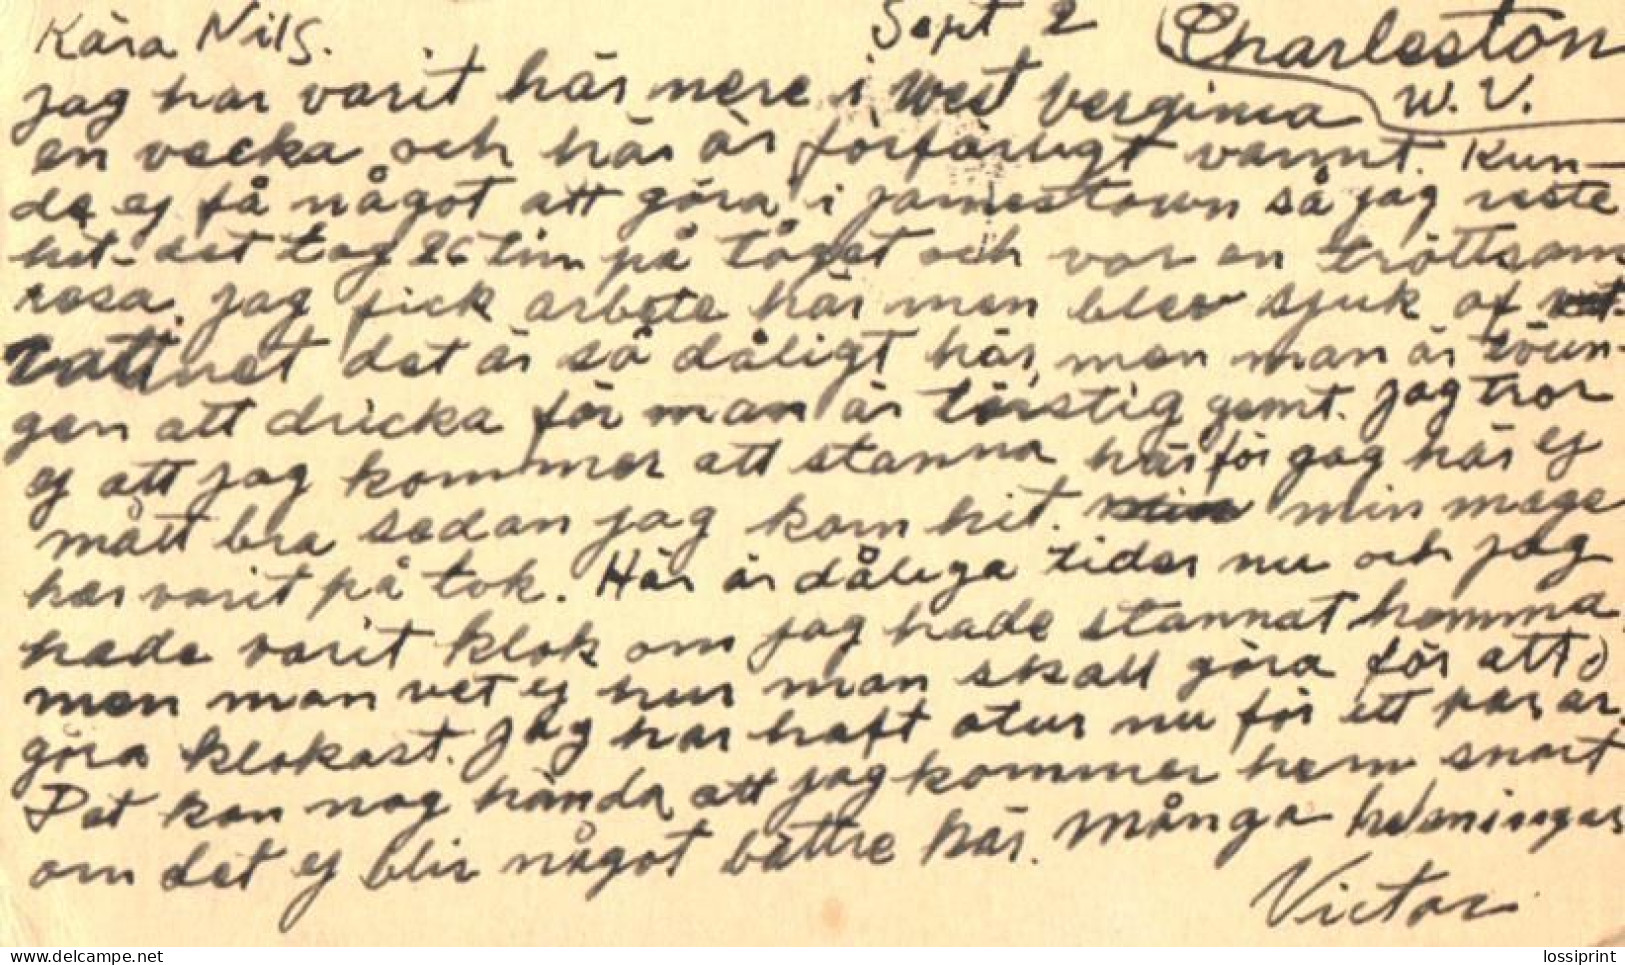 Kära Nils. Sept 2 Charleston
W. V.
jag har varit här nere i West Verginia
en vecka och här är förfärligt varmt. Kun-
de ej få något att göra i jamestown så jag reste
hit. det tog 26 tim på tåget och var en tröttsam
resa. jag fick arbete här men blev sjuk af
vattnet det är så dåligt här, men man är tvun-
gen att dricka för man är törstig jemt. jag tror
ej att jag kommer att stanna här för jag här ej
mått bra sedan jag kom hit. min mage
har varit på tok. Här är dåliga tider nu och jag
hade varit klok om jag hade stannat hemma
men man vet ej hur man skall göra för att
göra klokast. jag har haft otur nu för ett par år.
Det kan nog hända att jag kommer hem snart
om det ej blir något bättre här. Många helsningar
Victor
www.delcampe.net lossiprint